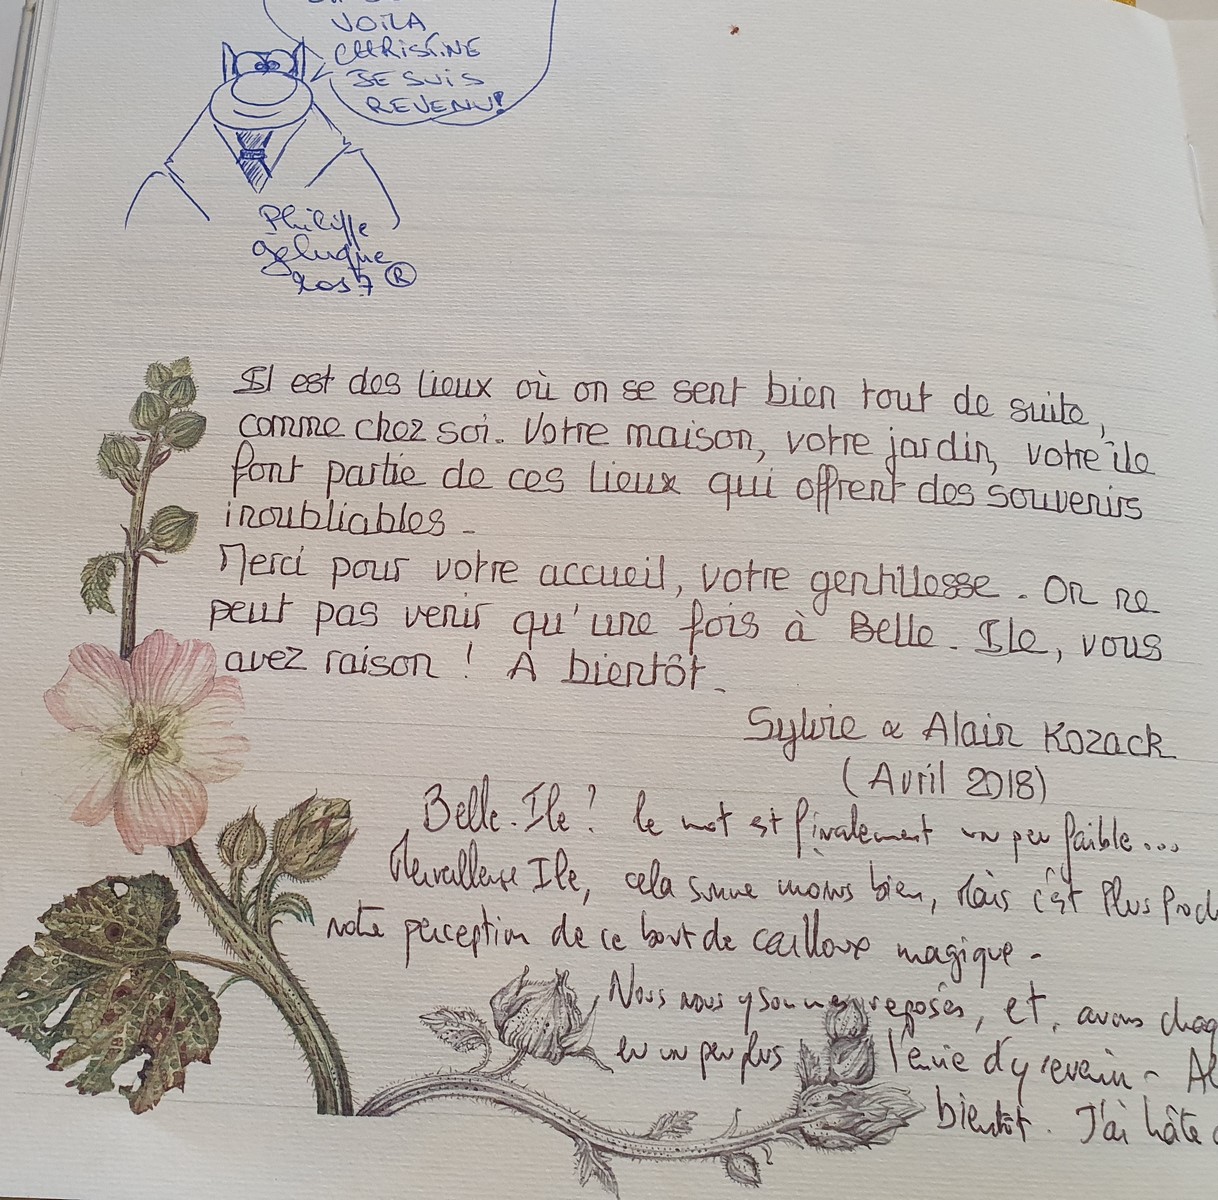 VOILA
CHRISTINE
JE SUIS
REVENU!
Philippe
Geluque
®
Il est des lieux où on se sent bien tout de suite,
comme chez soi. Votre maison, votre jardin, votre île
font partie de ces lieux qui offrent des souvenirs
inoubliables.
Merci pour votre accueil, votre gentillesse. On ne
peut pas venir qu'une fois à Belle-Ile, vous
avez raison ! A bientôt.
Sylvie & Alain Kozack
(Avril 2018)
Belle-Ile ? le mot est finalement un peu faible...
Merveilleuse Ile, cela sonne moins bien, Mais c'est Plus
notre perception de ce bout de cailloux magique.
Nous nous y sommes reposés, et, avons
eu un peu plus l'envie d'y revenir -
bientôt. J'ai hâte